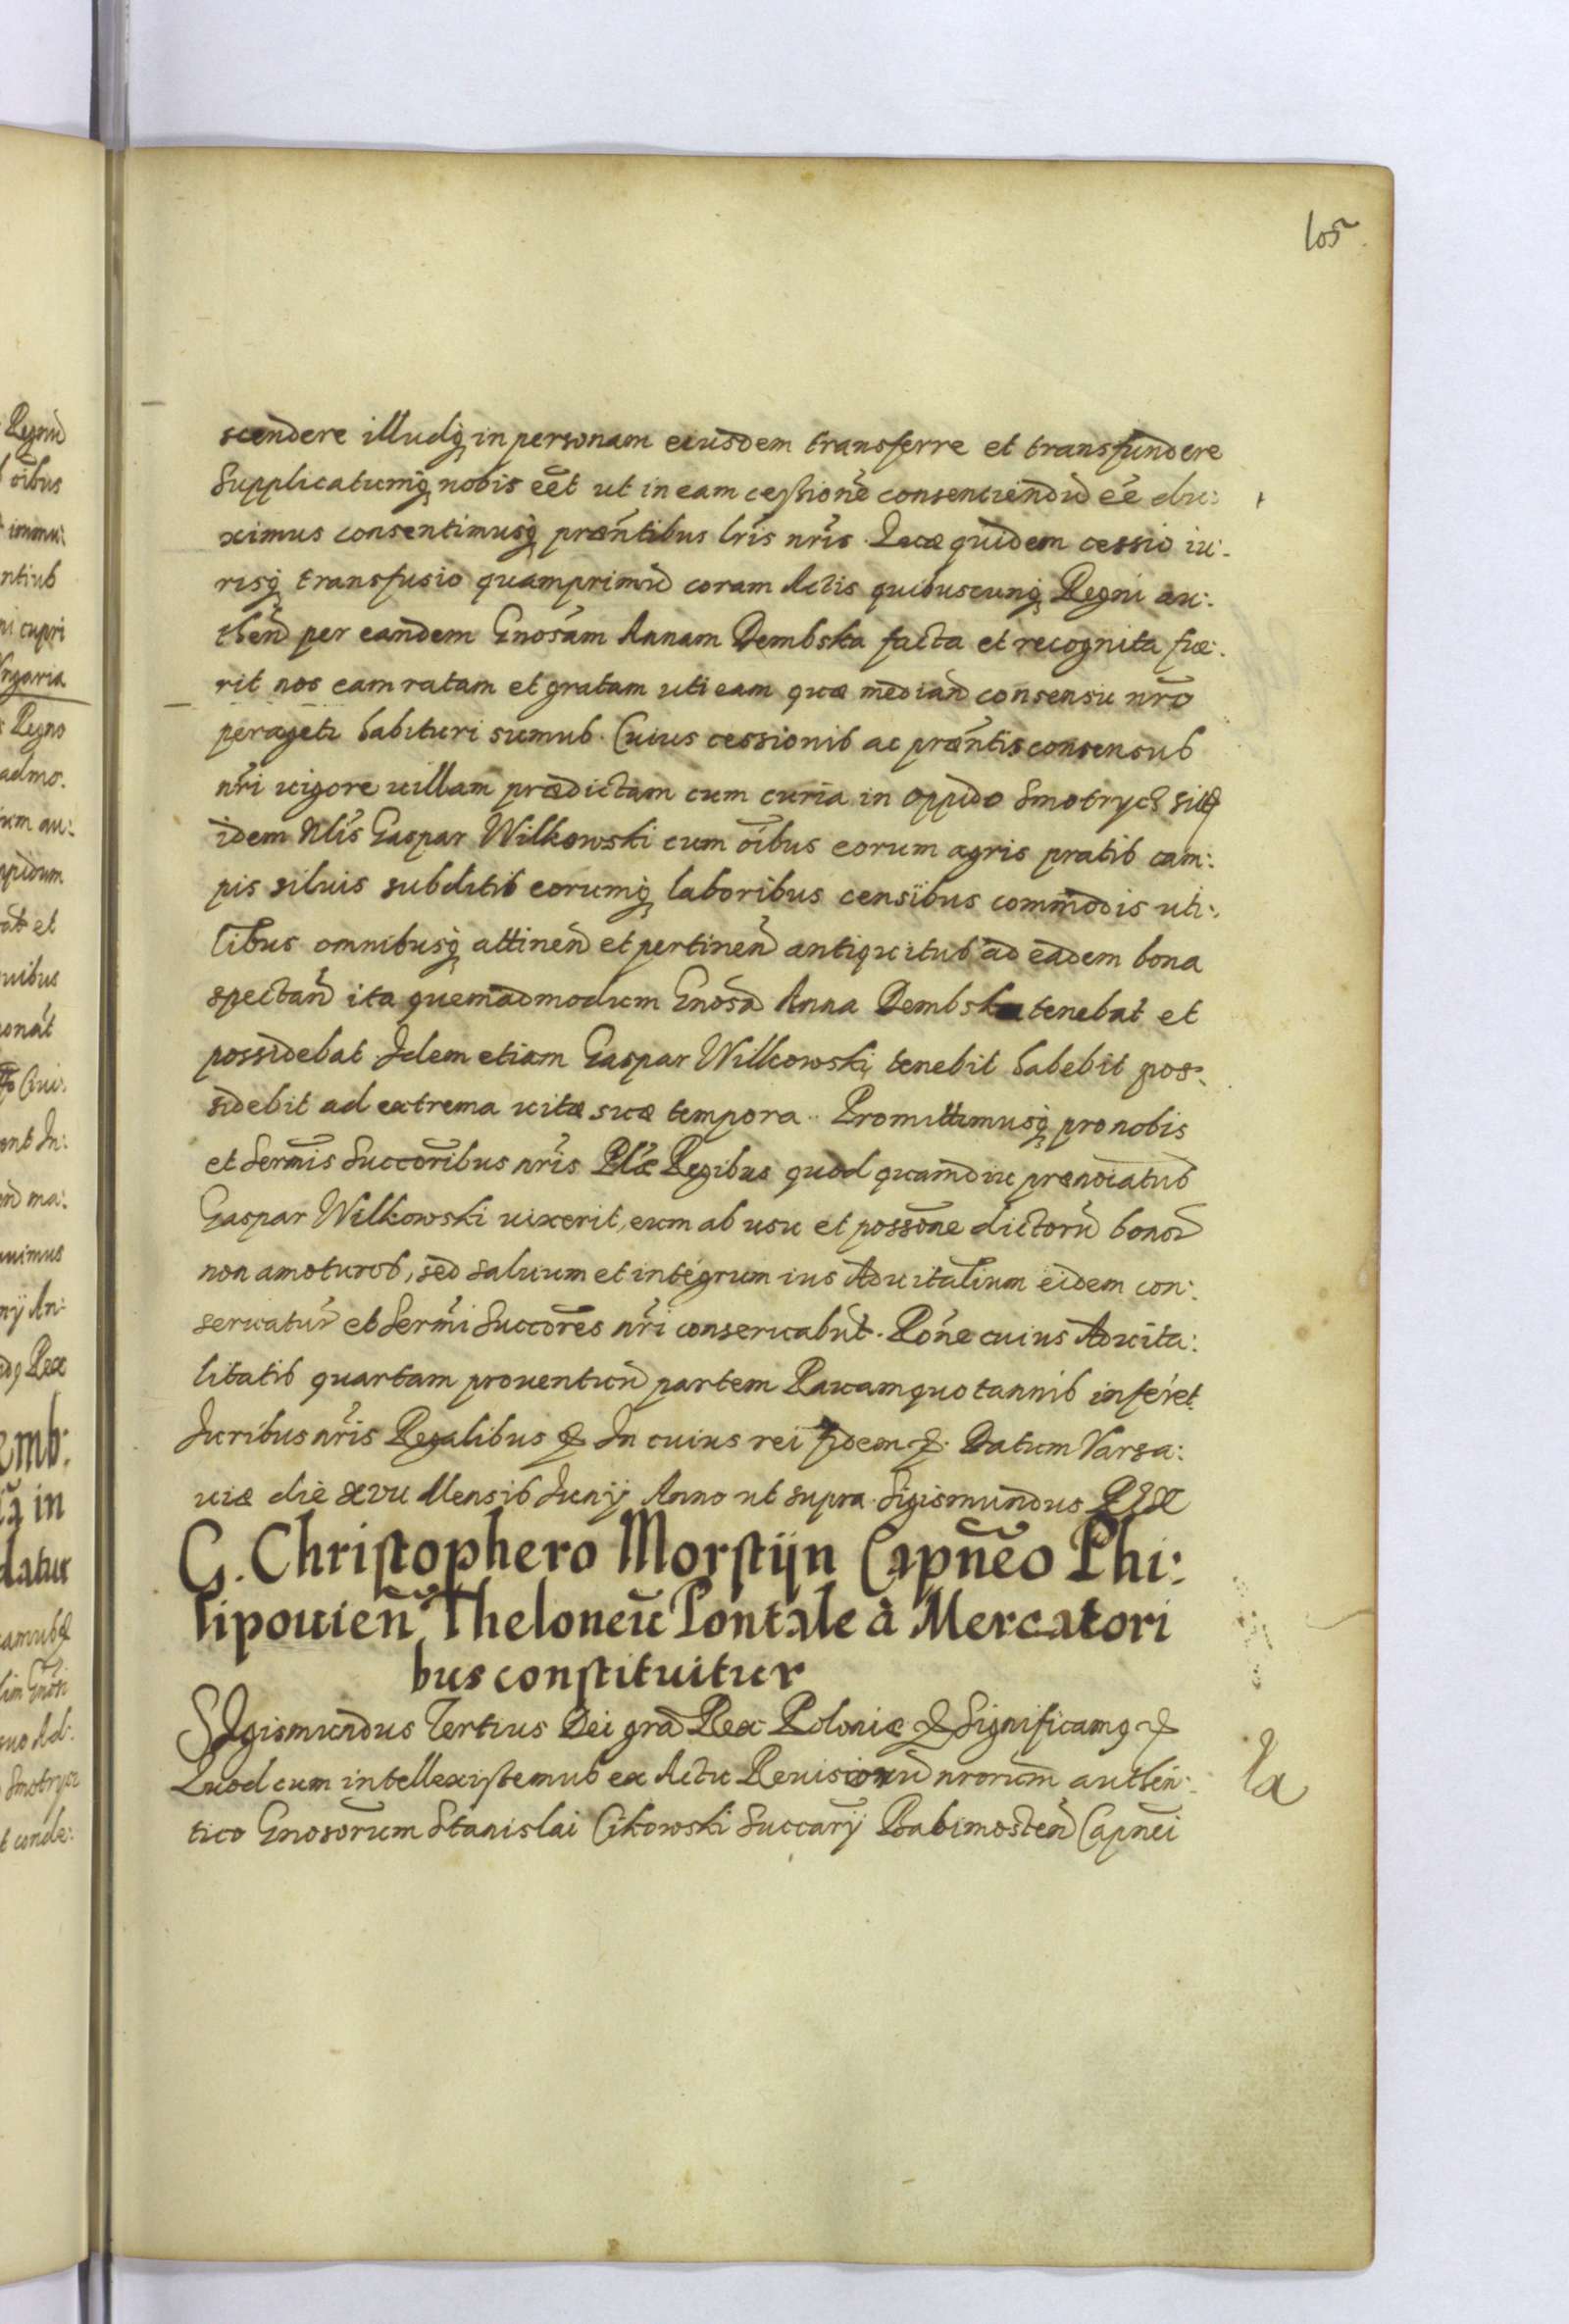 105
scendere illudq in personam eiusdem transferre et transfundere
Supplicatumq nobis eēt ut in eam cessionē consentiendū eē du:
ximus consentimusq pręntibus lris nris. Quæ quidem cessio iu:
risq transfusio quamprimū coram Actis quibuscunq Regni au:
then̄ per eandem Gnosam Annam Dembska facta et recognita fue:
rit nos eam ratam et gratam uti eam quæ median̄ consensu nrō
perageti habituri sumus. Cuius cessionis ac præntis consensus
nri vigore villam prædictam cum curia in oppido Smotrycz sitt
idem Nlis Gaspar Wilkowski cum oībus eorum agris pratis cam:
pis siluis subditis eorumq laboribus censibus commodis uti:
litbus omnibusq attinen̄ et pertinen̄ antiquitus ad eadem bona
spectan̄ ita quemadmodum Gnosa Anna Dembska tenebat et
possidebat Idem etiam Gaspar Wilkowski tenebit habebit pos:
sidebit ad extrema vitæ suæ tempora. Promittimusq pro nobis
et Sermis Succoribus nris Plæ Regibus quod quamdiu prænoiatus
Gaspar Wilkowski vixerit, eum ab usu et possōne dictorū bonor
non amoturos, sed saluum et integrum ius Aduitalium eidem con:
seruatur et Sermi Succores nri conseruabūt. Rōne cuius Aduita:
litatis quartam prouentuū partem Rauam quotannis inferet
Iuribus nris Regalibus & In cuius rei fidem &. Datum Varsa:
uiæ die xvii Mensis Iunij Anno ut supra. Sigismundus Rex
G. Christophero Morstijn Capnēo Phi:
lipouien̄ Theloneū Pontale à Mercatori
bus constituitur
SIgismundus Tertius Dei grā Rex Poloniæ & Significamq &
Quod cum intellexissemus ex Actu Reuisionū nrorum authen:
tico Gnosorum Stanislai Cikowski Succarij Babimosten̄ Capnei
la